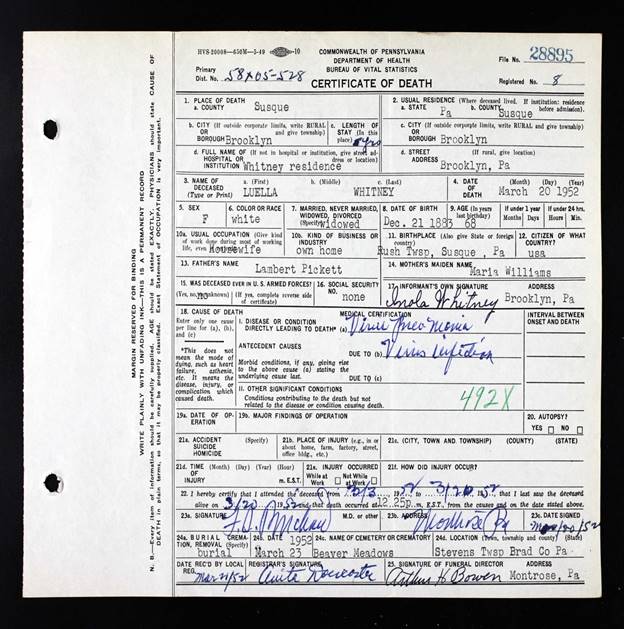 HVS-20008—650M—5-49 10
COMMONWEALTH OF PENNSYLVANIA
DEPARTMENT OF HEALTH
BUREAU OF VITAL STATISTICS
File No. 28895
Primary
Dist. No. 58X05-528
CERTIFICATE OF DEATH
Registered No. 8
1. PLACE OF DEATH
a. COUNTY Susque
2. USUAL RESIDENCE (Where deceased lived. If institution: residence before admission).
a. STATE Pa b. COUNTY Susque
b. CITY (If outside corporate limits, write RURAL and give township)
OR
BOROUGH Brooklyn
c. LENGTH OF STAY (In this place)
c. CITY (If outside corporate limits, write RURAL and give township)
OR
BOROUGH Brooklyn
d. FULL NAME OF (If not in hospital or institution, give street address or location)
HOSPITAL OR
INSTITUTION Whitney residence
d. STREET (If rural, give location)
ADDRESS Brooklyn, Pa
3. NAME OF DECEASED (Type or Print)
a. (First) b. (Middle) c. (Last)
LUELLA WHITNEY
4. DATE OF DEATH (Month) (Day) (Year)
March 20 1952
5. SEX
F
6. COLOR OR RACE
white
7. MARRIED, NEVER MARRIED, WIDOWED, DIVORCED (Specify)
widowed
8. DATE OF BIRTH
Dec. 21 1883
9. AGE (In years last birthday)
68
If under 1 year
Months Days
If under 24 hrs.
Hours Min.
10a. USUAL OCCUPATION (Give kind of work done during most of working life, even if retired)
Housewife
10b. KIND OF BUSINESS OR INDUSTRY
own home
11. BIRTHPLACE (Also give State or foreign country)
Rush Twsp, Susque , Pa
12. CITIZEN OF WHAT COUNTRY?
usa
13. FATHER'S NAME
Lambert Pickett
14. MOTHER'S MAIDEN NAME
Maria Williams
15. WAS DECEASED EVER IN U.S. ARMED FORCES?
(Yes, no) (If yes, complete reverse side of certificate)
no
16. SOCIAL SECURITY NO.
none
17. INFORMANT'S OWN SIGNATURE ADDRESS
Whitney Brooklyn, Pa
18. CAUSE OF DEATH
Enter only one cause per line for (a), (b), and (c)
*This does not mean the mode of dying, such as heart failure, asthenia, etc. It means the disease, injury, or complication which caused death.
MEDICAL CERTIFICATION
I. DISEASE OR CONDITION DIRECTLY LEADING TO DEATH* (a) Virus Pneumonia
ANTECEDENT CAUSES
DUE TO (b) Virus infection
Morbid conditions, if any, giving rise to the above cause (a) stating the underlying cause last.
DUE TO (c)
II. OTHER SIGNIFICANT CONDITIONS
Conditions contributing to the death but not related to the disease or condition causing death.
492X
INTERVAL BETWEEN ONSET AND DEATH
19a. DATE OF OPERATION
19b. MAJOR FINDINGS OF OPERATION
20. AUTOPSY?
YES NO
21a. ACCIDENT (Specify)
SUICIDE
HOMICIDE
21b. PLACE OF INJURY (e.g., in or about home, farm, factory, street, office bldg., etc.)
21c. (CITY, TOWN AND TOWNSHIP) (COUNTY) (STATE)
21d. TIME (Month) (Day) (Year) (Hour)
OF
INJURY m. E.S.T.
21e. INJURY OCCURRED
While at Work Not While at Work
21f. HOW DID INJURY OCCUR?
22. I hereby certify that I attended the deceased from 3/3 52 to 3/20 52 that I last saw the deceased
alive on 3/20 1952 and that death occurred at 12 25p m. E.S.T., from the causes and on the date stated above.
23a. SIGNATURE M.D. or other
23b. ADDRESS Montrose Pa
23c. DATE SIGNED
24a. BURIAL, CREMATION, REMOVAL (Specify)
burial
24b. DATE 1952
March 23
24c. NAME OF CEMETERY OR CREMATORY
Beaver Meadows
24d. LOCATION (Town, township and county) (State)
Stevens Twsp Brad Co Pa
DATE REC'D BY LOCAL REG.
REGISTRAR'S SIGNATURE
25. SIGNATURE OF FUNERAL DIRECTOR ADDRESS
Arthur H Bowen Montrose, Pa
MARGIN RESERVED FOR BINDING
WRITE PLAINLY WITH UNFADING INK—THIS IS A PERMANENT RECORD
N. B.—Every item of information should be carefully supplied. AGE should be stated EXACTLY. PHYSICIANS should state CAUSE OF
DEATH in plain terms, so that it may be properly classified. Exact Statement of OCCUPATION is very important.